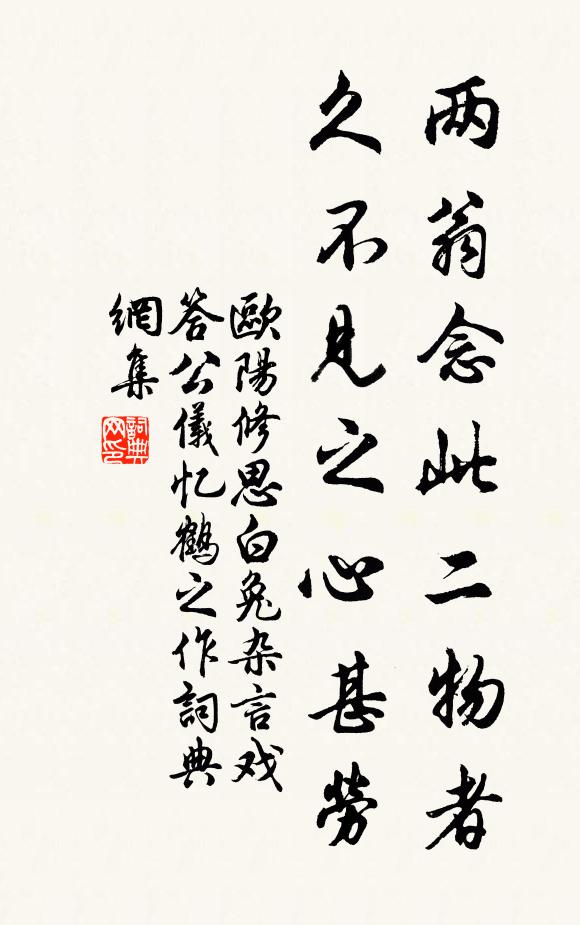 两翁念此二物者
久不见之心甚劳
歐陽修思白兔杂言戏
答公儀忆鶴之作詞典
網集
詞典
网印